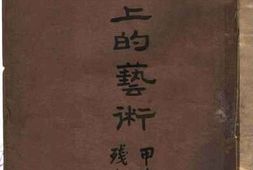 上的藝術
甲
殘